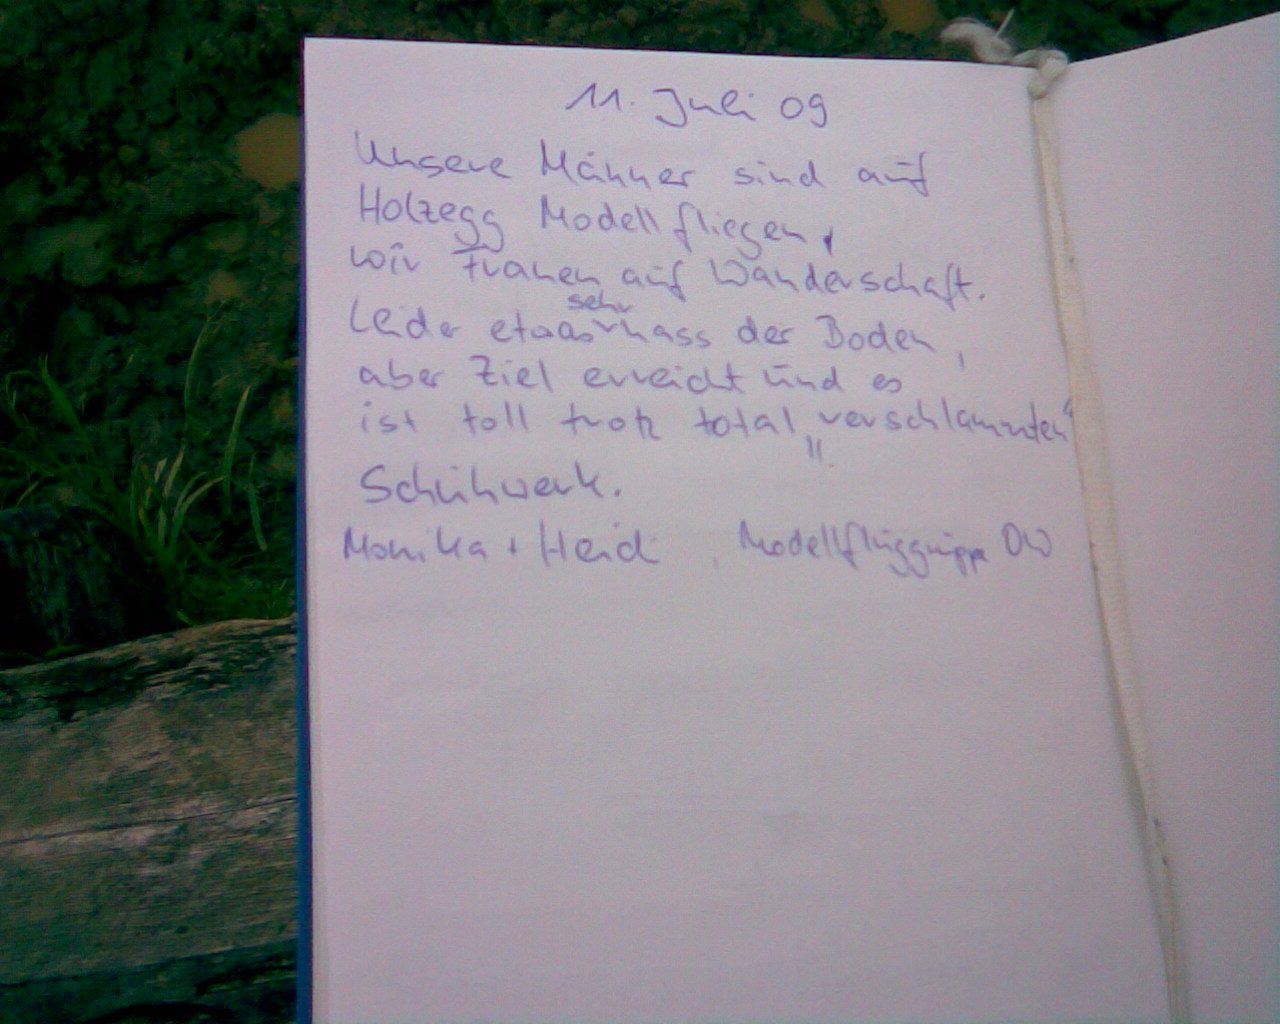 11. Juli 09
Unsere Männer sind auf
Holzegg Modellfliegen,
wir Frauen auf Wanderschaft.
sehr
Leider etwas nass der Boden,
aber Ziel erreicht und es
ist toll trotz total „verschlammten“
Schuhwerk.
Monika + Heidi, Modellfluggruppe OW